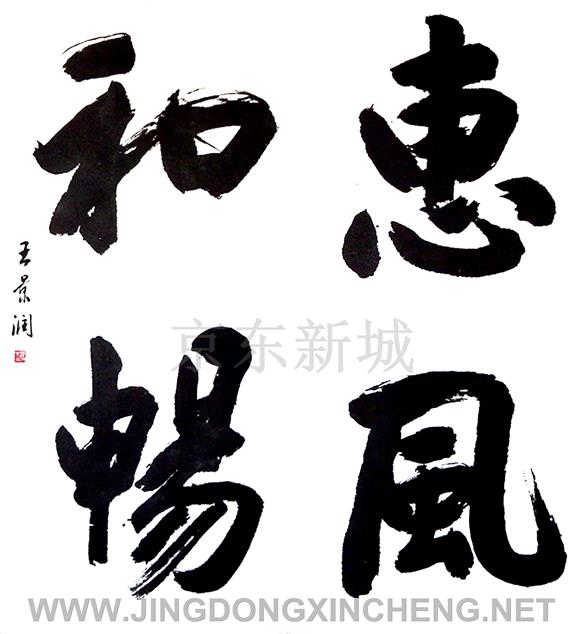 惠風
和暢
王景润
京东新城
WWW.JINGDONGXINCHENG.NET